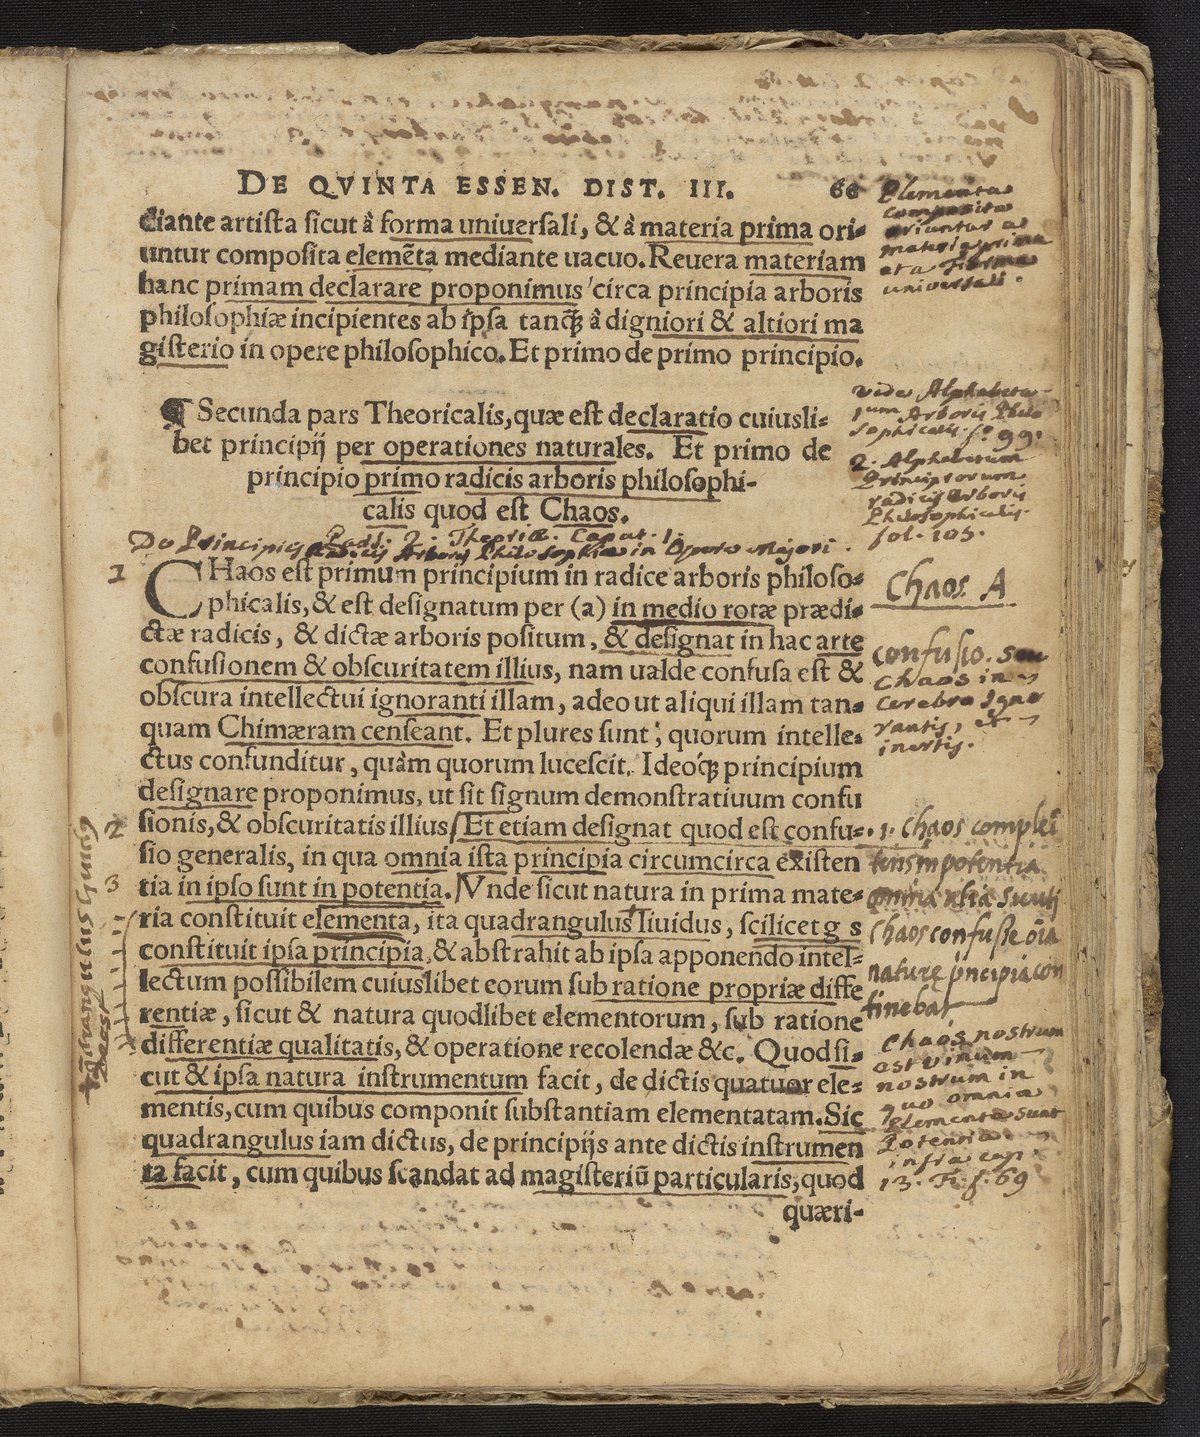 DE QVINTA ESSEN. DIST. III. 66
diante artista sicut â forma uniuersali, & â materia prima ori-
untur composita elemẽta mediante uacuo. Reuera materiam
hanc primam declarare proponimus circa principia arboris
philosophiæ incipientes ab ipsa tanq̃ȝ â digniori & altiori ma
gisterio in opere philosophico. Et primo de primo principio.
Elementa
composita
oriuntur a
materia prima
et a Forma
universali.
¶ Secunda pars Theoricalis, quæ est declaratio cuiusli-
bet principij per operationes naturales. Et primo de
principio primo radicis arboris philosophi-
calis quod est Chaos.
vide Alphabeta
1um Arboris Philo
sophicalis. fo. 99.
2. Alphabetum
Principiorum
radicis Arboris
Philosophicalis.
fol. 105.
Pars. 2. Theoriæ. Caput. 1.
De Principijs Radicis Arboris Philosophiæ in Opere Majori.
1
CHaos est primum principium in radice arboris philoso-
phicalis, & est designatum per (a) in medio rotæ prædi-
ctæ radicis, & dictæ arboris positum, & designat in hac arte
confusionem & obscuritatem illius, nam ualde confusa est &
obscura intellectui ignoranti illam, adeo ut aliqui illam tan-
quam Chimæram censeant. Et plures sunt, quorum intelle-
ctus confunditur, quàm quorum lucescit. Ideóq́ȝ principium
designare proponimus, ut sit signum demonstratiuum confu
sionis, & obscuritatis illius. Et etiam designat quod est confu-
sio generalis, in qua omnia ista principia circumcirca existen
tia in ipso sunt in potentia. Vnde sicut natura in prima mate-
ria constituit elementa, ita quadrangulus liuidus, scilicet g s
constituit ipsa principia, & abstrahit ab ipsa apponendo intel-
lectum possibilem cuiuslibet eorum sub ratione propriæ diffe
rentiæ, sicut & natura quodlibet elementorum, sub ratione
differentiæ qualitatis, & operatione recolendæ &c. Quod si-
cut & ipsa natura instrumentum facit, de dictis quatuor ele-
mentis, cum quibus componit substantiam elementatam. Sic
quadrangulus iam dictus, de principijs ante dictis instrumen
ta facit, cum quibus scandat ad magisteriũ particularis, quod
quæri-
2
3
quadrangulus liuidus
deest
Chaos A
confusio. seu
Chaos in
cerebro Igno
rantis, et
inertis.
1. Chaos complec
tens in potentia
omnia alia sicuti
Chaos confuse oĩa
naturę p̃ncipia con
tinebat
Chaos nostrum
est vinum
nostrum in
quo omnia
elementa sunt
Potentia
infra cap.
13. Ti. f. 69